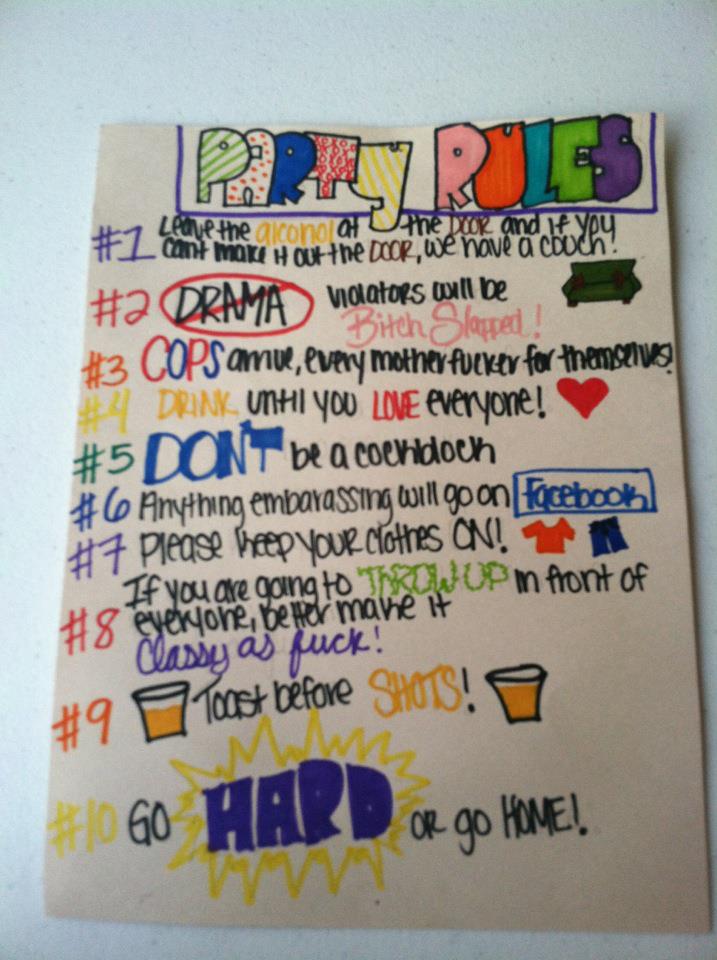 PARTY RULES
#1 Leave the alcohol at the DOOR and if you
cant make it out the DOOR, we have a couch!
#2 DRAMA violators will be
Bitch Slapped!
#3 COPS arrive, every motherfucker for themselves!
#4 DRINK until you LOVE everyone!
#5 DON'T be a cockblock
#6 Anything embarassing will go on Facebook
#7 Please keep your clothes ON!
If you are going to THROW UP in front of
#8 everyone, better make it
Classy as fuck!
#9 Toast before SHOTS!
#10 GO HARD or go HOME!